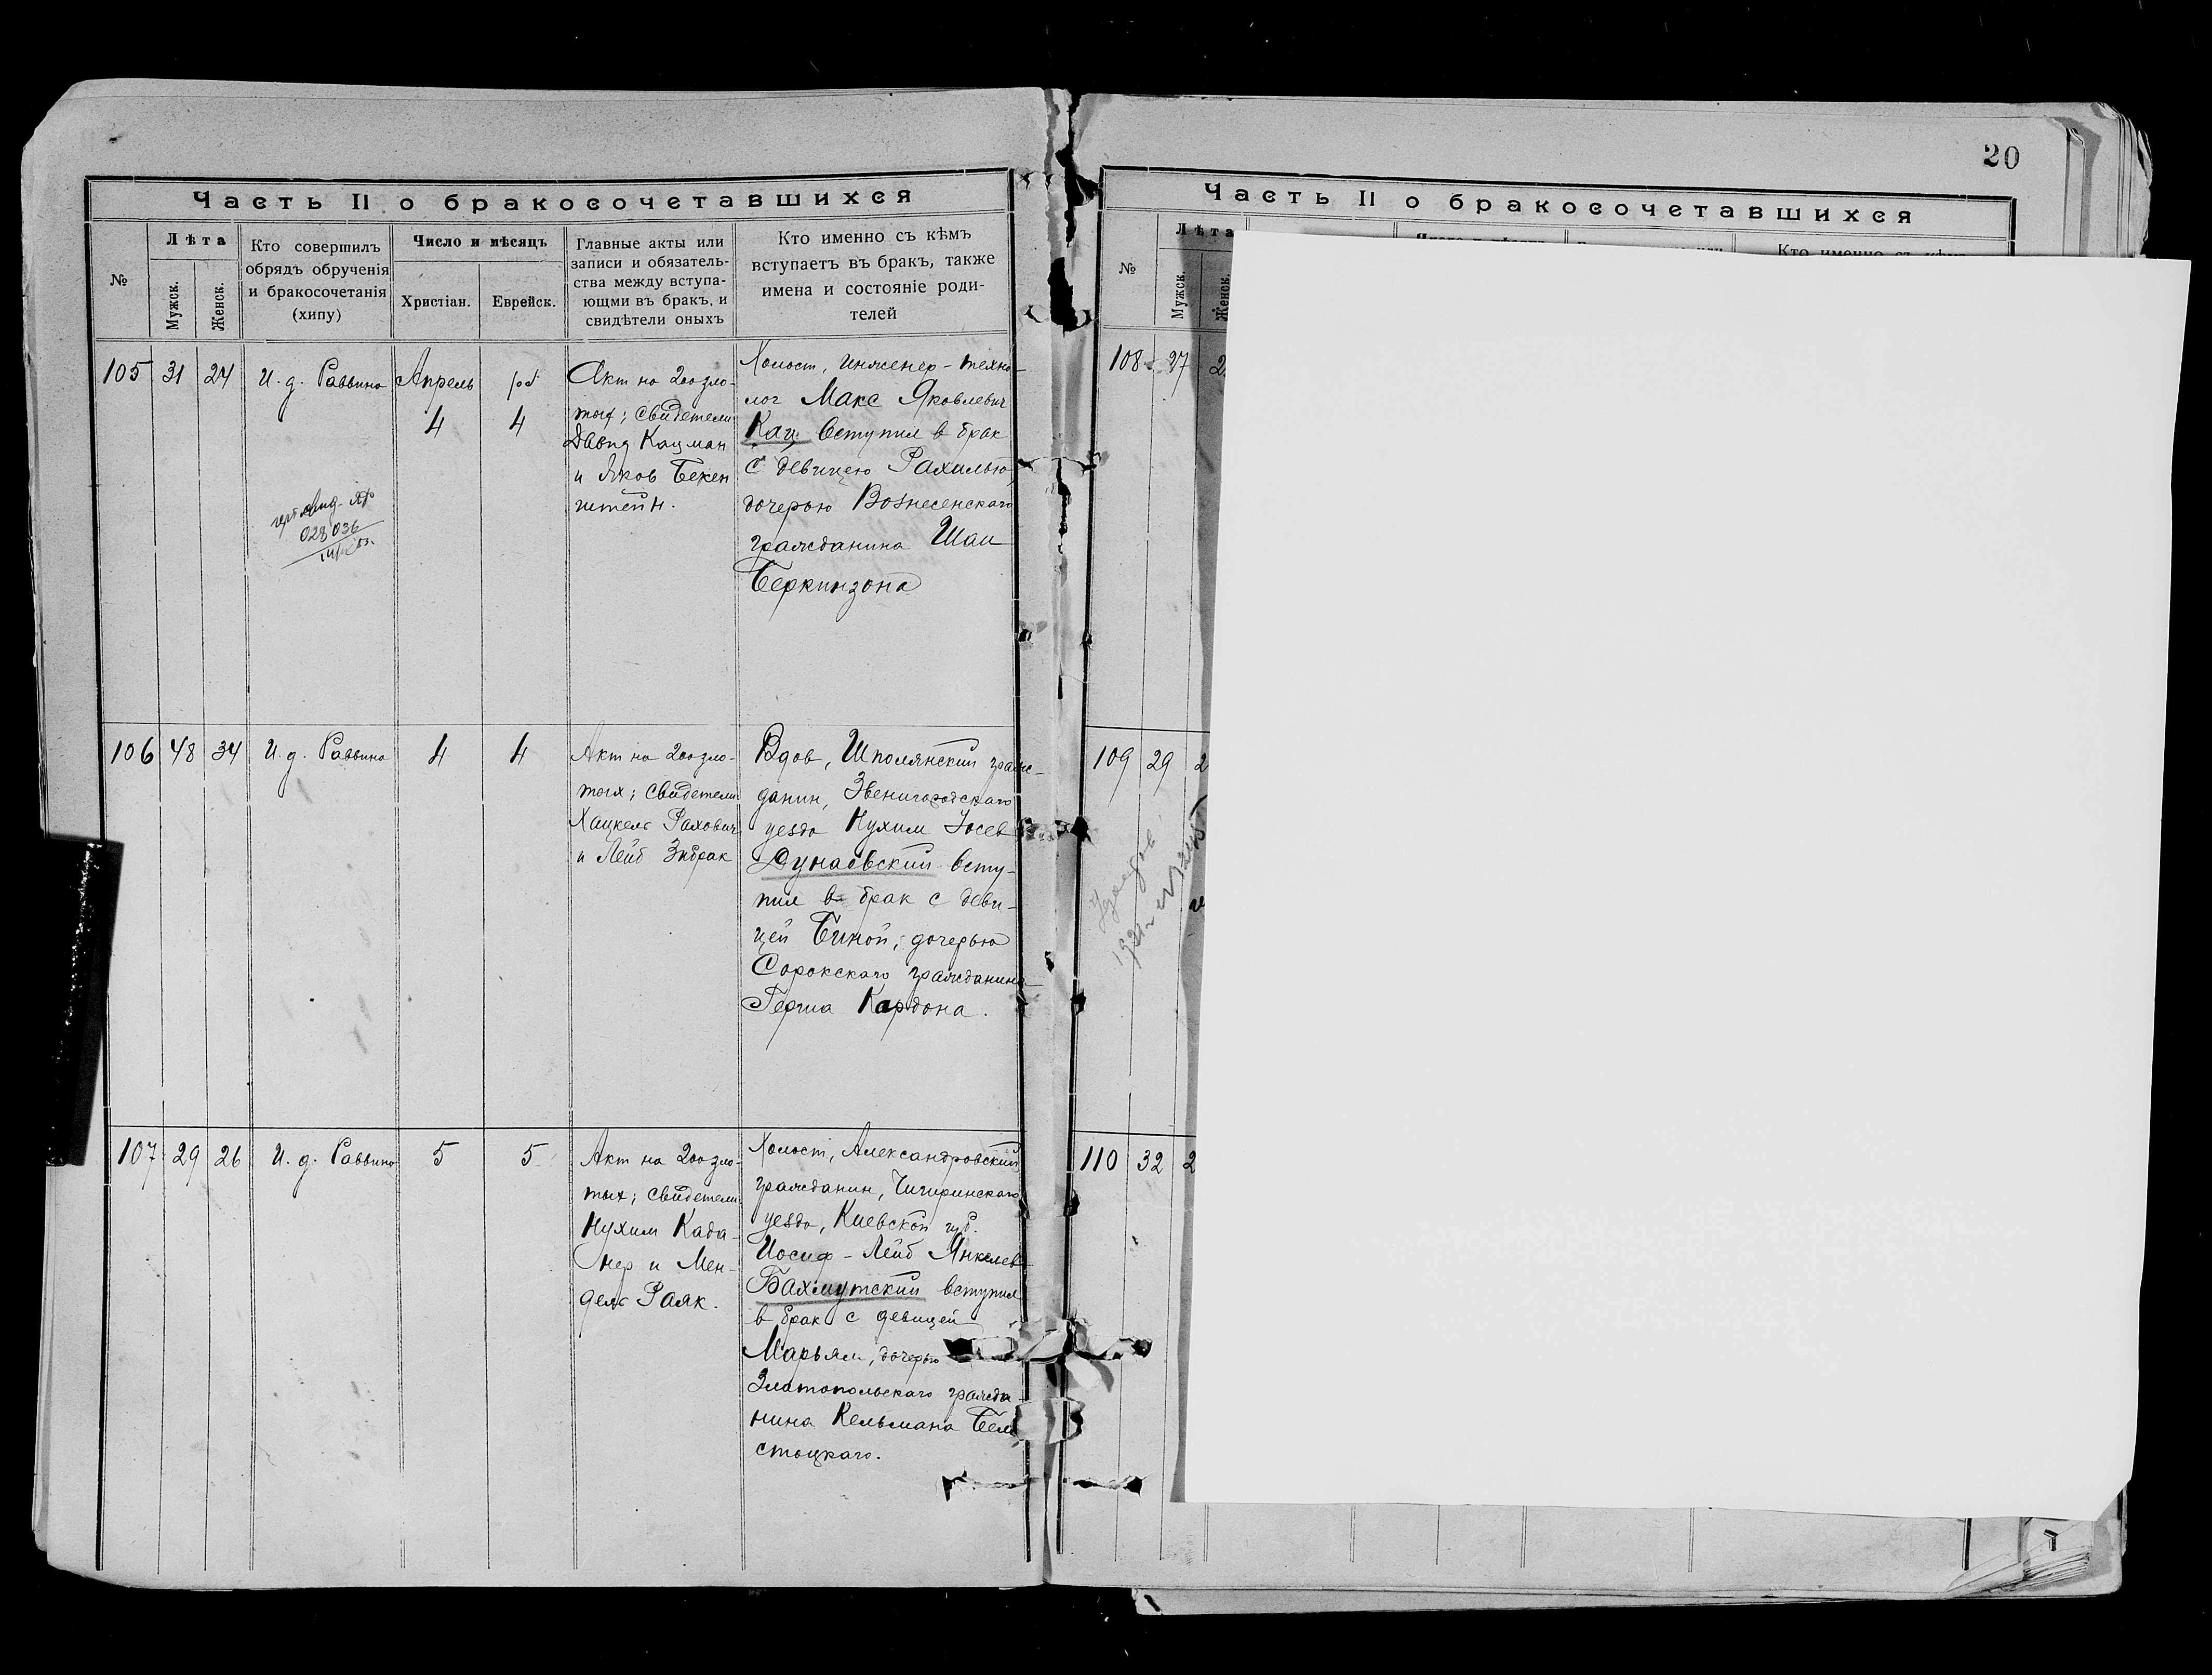 20
Часть II о бракосочетавшихся
№
Лѣта
Мужск.
Женск.
Кто совершилъ
обрядъ обрученія
и бракосочетанія
(хипу)
Число и мѣсяцъ
Христіан.
Еврейск.
Главные акты или
записи и обязатель-
ства между вступа-
ющми въ бракъ, и
свидѣтели оныхъ
Кто именно съ кѣмъ
вступаетъ въ бракъ, также
имена и состояніе роди-
телей
105 31 24
И. д. Раввина
Апрель
4
4
Акт на 200 зло-
тых; свидетели
Давид Кацман
и Яков Бекен
штейн.
Холост, инженер-техно-
лог Макс Яковлевич
Кац вступил в брак
с девицею Рахилью,
дочерью Вознесенскаго
гражданина Шаи
Беркинзона
028036
106 48 34
И. д. Раввина
4
4
Акт на 200 зло-
тых; свидетели
Хацкель Рахович
и Лейб Зибрак
Вдов, Шполянский граж-
данин, Звенигородскаго
уезда Нухим Iосев
Дунаевский всту-
пил в брак с деви-
цей Биной, дочерью
Сорокскаго гражданина
Герша Кардона.
107 29 26
И. д. Раввина
5
5
Акт на 200 зло-
тых; свидетели
Нухим Када-
нер и Мен-
дель Раяк.
Холост, Александровский
гражданин, Чигиринскаго
уезда, Киевской губ.
Иосиф-Лейб Янкелев
Бахмутский вступил
в брак с девицей
Марьям, дочерью
Златопольскаго гражда-
нина Кельмана Бело
стоцкаго.
Часть II о бракосочетавшихся
№
Лѣта
Мужск.
Женск.
Кто именно съ кѣмъ
108 27 2
109 29 2
110 32 2